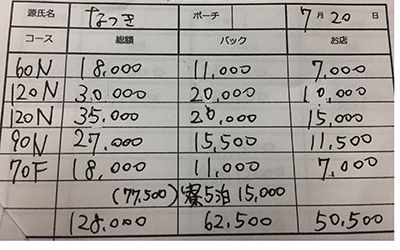 源氏名 なつき ポーチ 7月20日
コース 総額 バック お店
60N 18,000 11,000 7,000
120N 30,000 20,000 10,000
120N 35,000 20,000 15,000
90N 27,000 15,500 11,500
70F 18,000 11,000 7,000
(77,500) 寮5泊 15,000
128,000 62,500 50,500